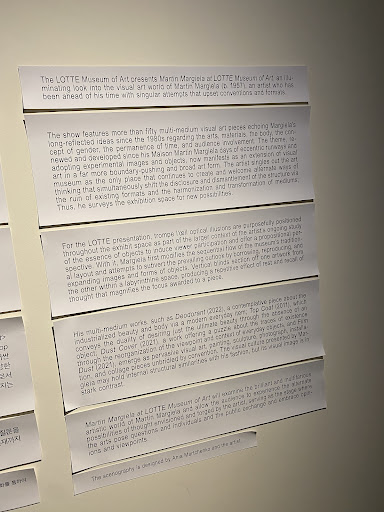 The LOTTE Museum of Art presents Martin Margiela at LOTTE Museum of Art, an illu-
minating look into the visual art world of Martin Margiela (b. 1957), an artist who has
been ahead of his time with singular attempts that upset conventions and formats.
The show features more than fifty multi-medium visual art pieces echoing Margiela's
long-reflected ideas since the 1980s regarding the arts, materials, the body, the con-
cept of gender, the permanence of time, and audience involvement. The theme, re-
newed and developed since his Maison Martin Margiela days of eccentric runways and
adopting experimental images and objects, now manifests as an extension of visual
art in a far more boundary-pushing and broad art form. The artist singles out the art
museum as the only place that continues to create and welcome alternate ways of
thinking that simultaneously shift the disclosure and dismantlement of the structure via
the ruin of existing formats and the harmonization and transformation of mediums.
Thus, he surveys the exhibition space for new possibilities.
For the LOTTE presentation, trompe l'œil optical illusions are purposefully positioned
throughout the exhibit space as part of the larger context of the artist's ongoing study
of the essence of objects to induce viewer participation and offer a propositional per-
spective. With a Margiela first modifies the sequential flow of the museum's tradition-
al layout and attempts to subvert the prevailing customs by borrowing, reproducing,
expanding images and forms of objects. Vertical blinds section off one artwork from
the other within a labyrinthine space, producing a repetitive effect of rest and recall of
thought that magnifies the focus awarded to a piece.
His multi-medium works, such as Deodorant (2022), a contemplative piece about the
industrialized beauty and body via a modern everyday item, Top Coat (2011), which
conveys the duality of desiring just the ultimate beauty through the absence of an
object, Dust Cover (2021), a work offering a puzzle about the value of existence
through the reorganization of the viewpoint and context of everyday objects, and Film
Dust (2021), emerge as pervasive visual art, painting, sculpture, photograph, installa-
tion, and collage pieces untroubled by convention. The visual culture presented by Mar-
giela may find internal structural similarities with his fashion, but its visual image is in
stark contrast.
Martin Margiela at LOTTE Museum of Art will examine the brilliant and multifarious
artistic world of Martin Margiela and allow the audience to experience the alternate
possibilities of thought envisioned and forged by the artist, serving as the stage where
the arts pose questions and individuals and the public exchange and embrace opin-
ions and viewpoints.
The scenography is designed by Ania Martchenko and the artist.